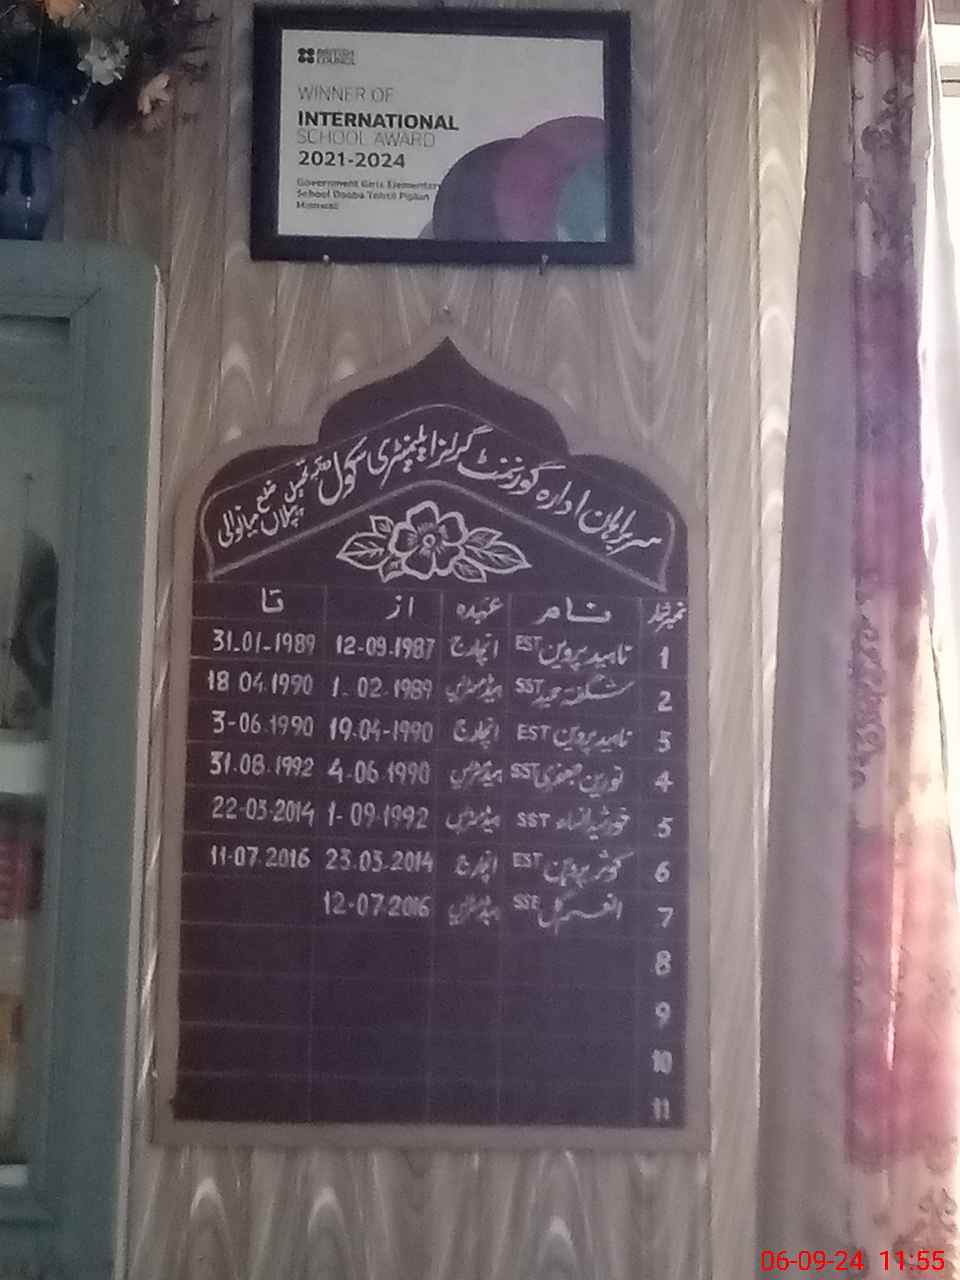 BRITISH COUNCIL
WINNER OF
INTERNATIONAL
SCHOOL AWARD
2021-2024
Government Girls Elementary
School Doaba Tehsil Piplan
Mianwali
سربراہان ادارہ گورنمنٹ گرلز ایلیمنٹری سکول دوآبہ تحصیل پپلاں ضلع میانوالی
نمبر شمار نام عہدہ از تا
1 ناہید پروین EST انچارج 12-09-1987 31-01-1989
2 شگفتہ حمید SST ہیڈمسٹریس 1-02-1989 18-04-1990
3 ناہید پروین EST انچارج 19-04-1990 3-06-1990
4 نورین جعفری SST ہیڈمسٹریس 4-06-1990 31-08-1992
5 خورشید النساء SST ہیڈمسٹریس 1-09-1992 22-03-2014
6 کوثر پروین EST انچارج 23-03-2014 11-07-2016
7 گل SSE ہیڈمسٹریس 12-07-2016
8
9
10
11
06-09-24 11:55